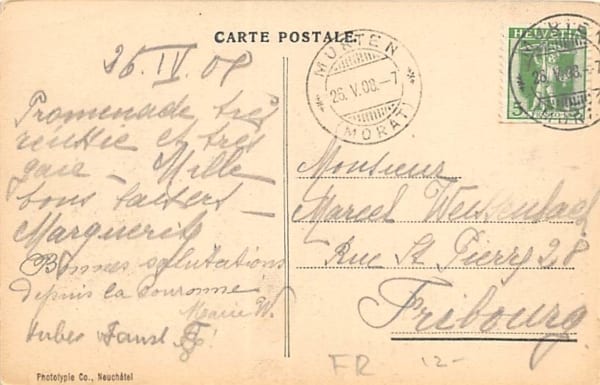 CARTE POSTALE.
26 IV 08
Promenade très
réussie et très
gaie – Mille
bons baisers –
Marguerite
Bonnes salutations
depuis la couronne
Marie W.
MURTEN
26.V.08.–7
(MORAT)
HELVETIA
5
26.V.08.–7
Monsieur
Marcel Weissenbach
Rue St Pierre 28
Fribourg
FR 12-
Phototypie Co., Neuchâtel